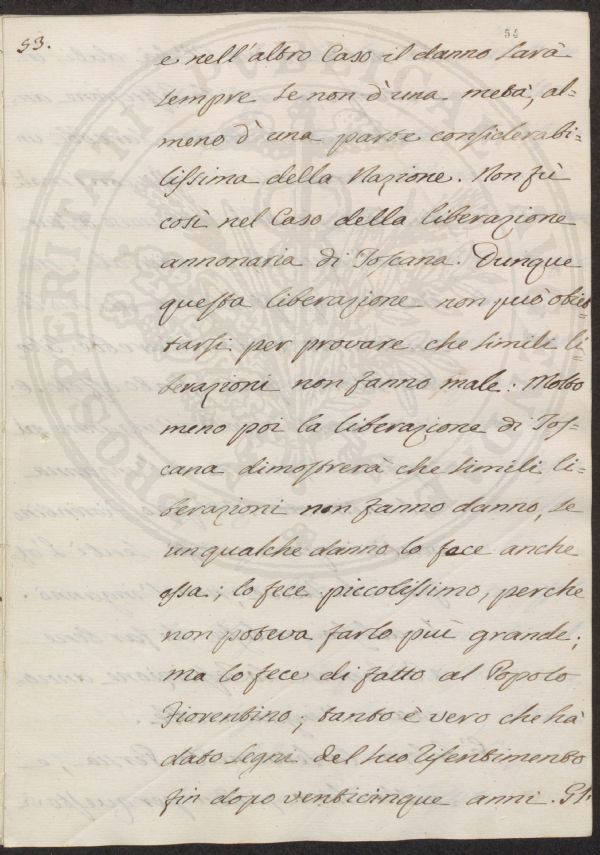 53.
54
e nell'altro Caso il danno sarà
sempre se non d'una metà, al-
meno d'una parte considerabi-
lissima della Nazione. Non fù
così nel Caso della liberazione
annonaria di Toscana. Dunque
questa liberazione non può obiet
tarsi per provare che simili li
berazioni non fanno male: Molto
meno poi la liberazione di Tos-
cana dimostrerà che simili li-
berazioni non fanno danno, se
un qualche danno lo fece anche
essa; lo fece piccolissimo, perche
non poteva farlo più grande;
ma lo fece di fatto al Popolo
Fiorentino; tanto è vero che hà
dato segni del suo risentimento
fin dopo venticinque anni. Gl'
PROSPERITATI PUBLICAE